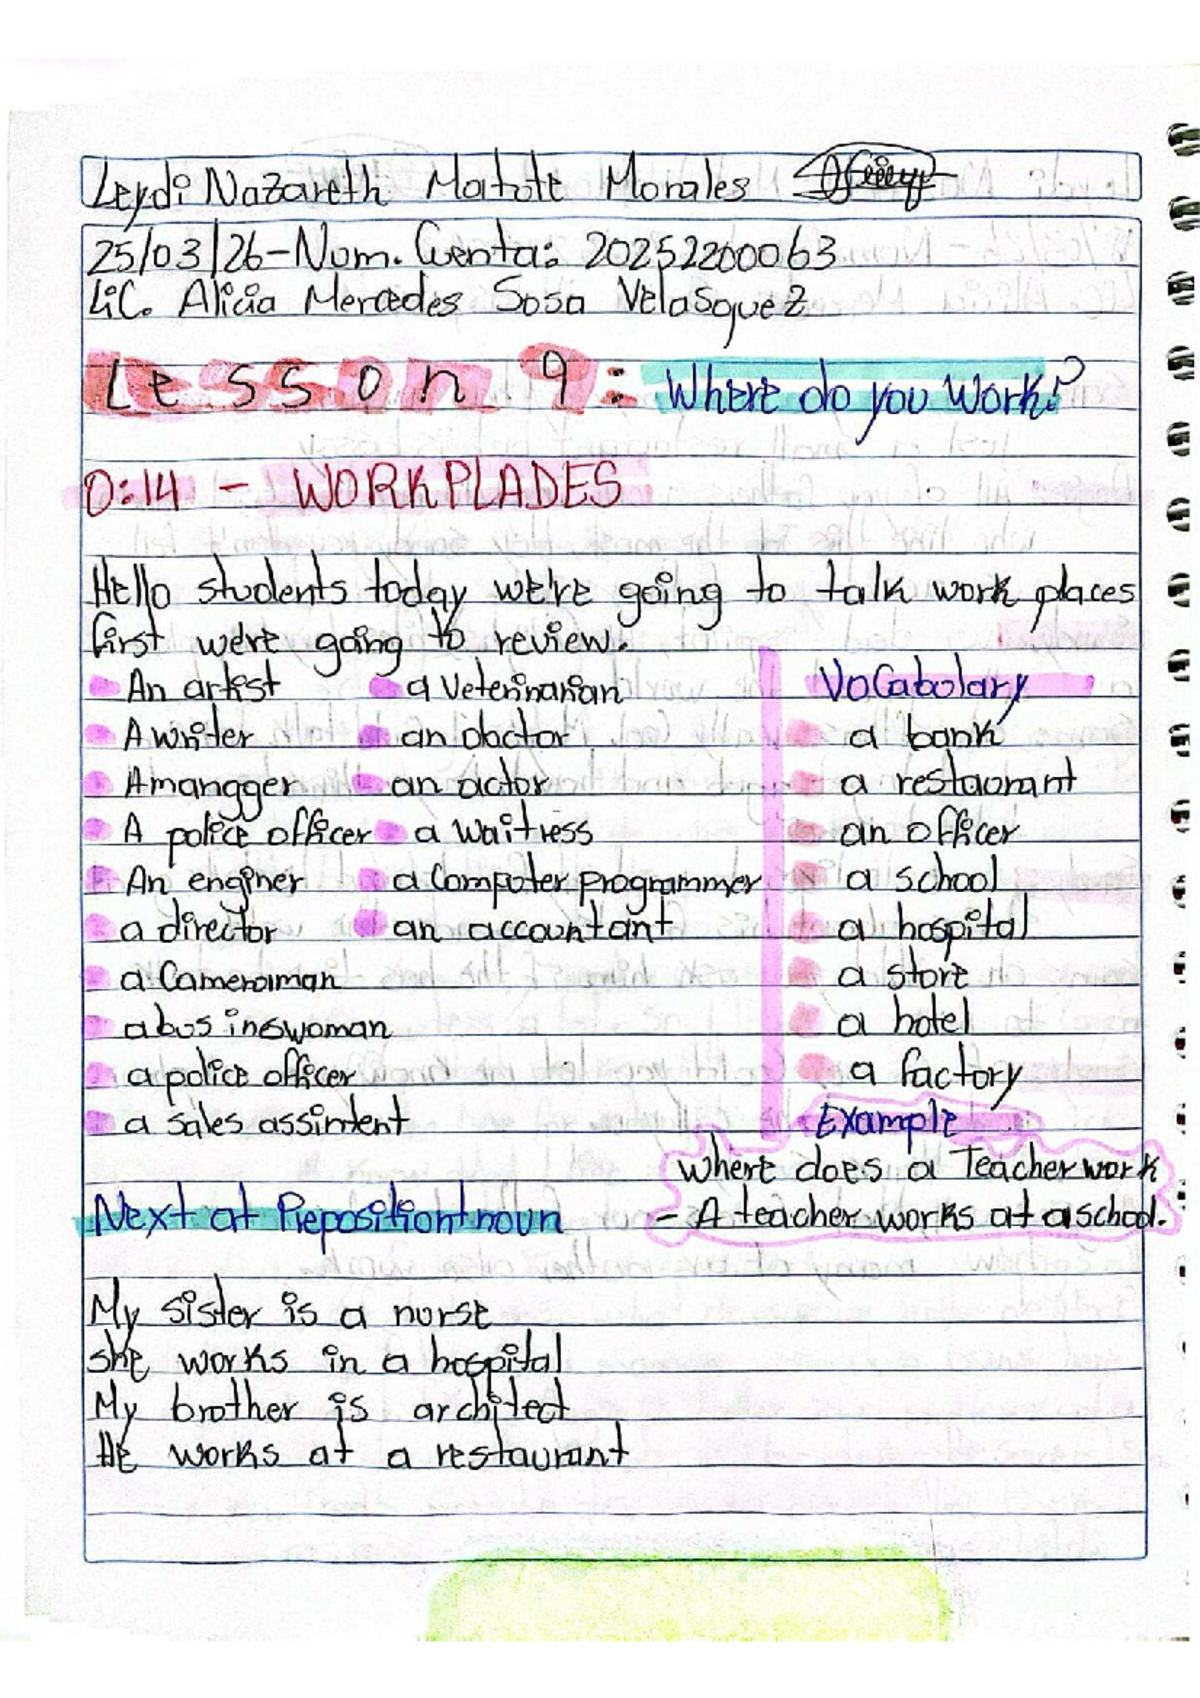 Leydi Nazareth Matote Morales
25/03/26-Num. Cuenta: 20252200063
Lic. Alicia Mercedes Sosa Velasquez
Lesson 9: Where do you work?
0:14 - WORKPLADES
Hello students today we're going to talk work places
first we're going to review.
An artist
A writer
A mangger
A police officer
An enginer
a director
a Cameraman
a bus ineswoman
a police officer
a sales assintent
a Veterinarian
an doctor
an actor
a waitress
a Computer programmer
an accountant
Vocabulary
a bank
a restaurant
an officer
a school
a hospital
a store
a hotel
a factory
Example
Where does a Teacher work
- A teacher works at a school.
Next at Prepositiontnoun
My sister is a nurse
she works in a hospital
My brother is architect
He works at a restaurant